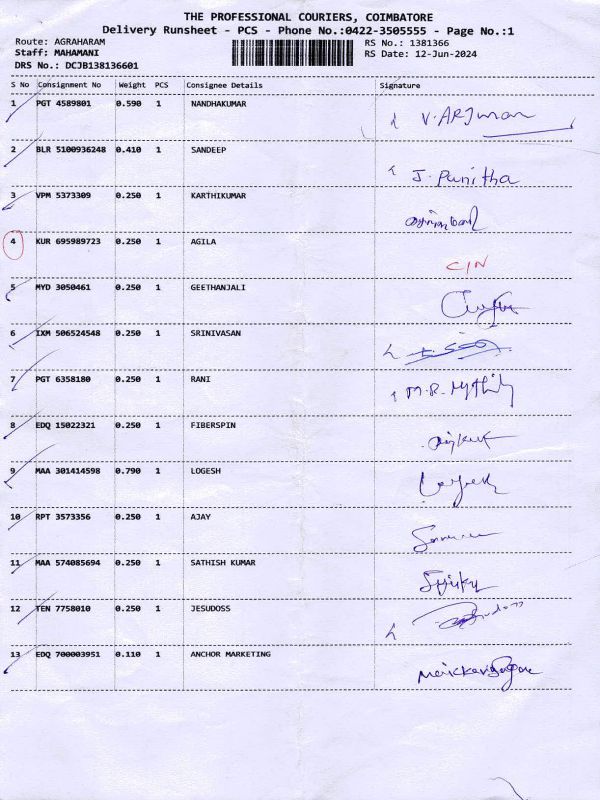 THE PROFESSIONAL COURIERS, COIMBATORE
Delivery Runsheet - PCS - Phone No.:0422-3505555 - Page No.:1
Route: AGRAHARAM RS No.: 1381366
Staff: MAHAMANI RS Date: 12-Jun-2024
DRS No.: DCJB138136601
S No Consignment No Weight PCS Consignee Details Signature
1 PGT 4589801 0.590 1 NANDHAKUMAR V. ARJUNAN
2 BLR 5100936248 0.410 1 SANDEEP J. Punitha
3 VPM 5373309 0.250 1 KARTHIKUMAR
4 KUR 695989723 0.250 1 AGILA C/N
5 MYD 3050461 0.250 1 GEETHANJALI
6 IXM 506524548 0.250 1 SRINIVASAN
7 PGT 6358180 0.250 1 RANI M.R. Mythily
8 EDQ 15022321 0.250 1 FIBERSPIN
9 MAA 301414598 0.790 1 LOGESH Logesh
10 RPT 3573356 0.250 1 AJAY
11 MAA 574085694 0.250 1 SATHISH KUMAR
12 TEN 7758010 0.250 1 JESUDOSS
13 EDQ 700003951 0.110 1 ANCHOR MARKETING